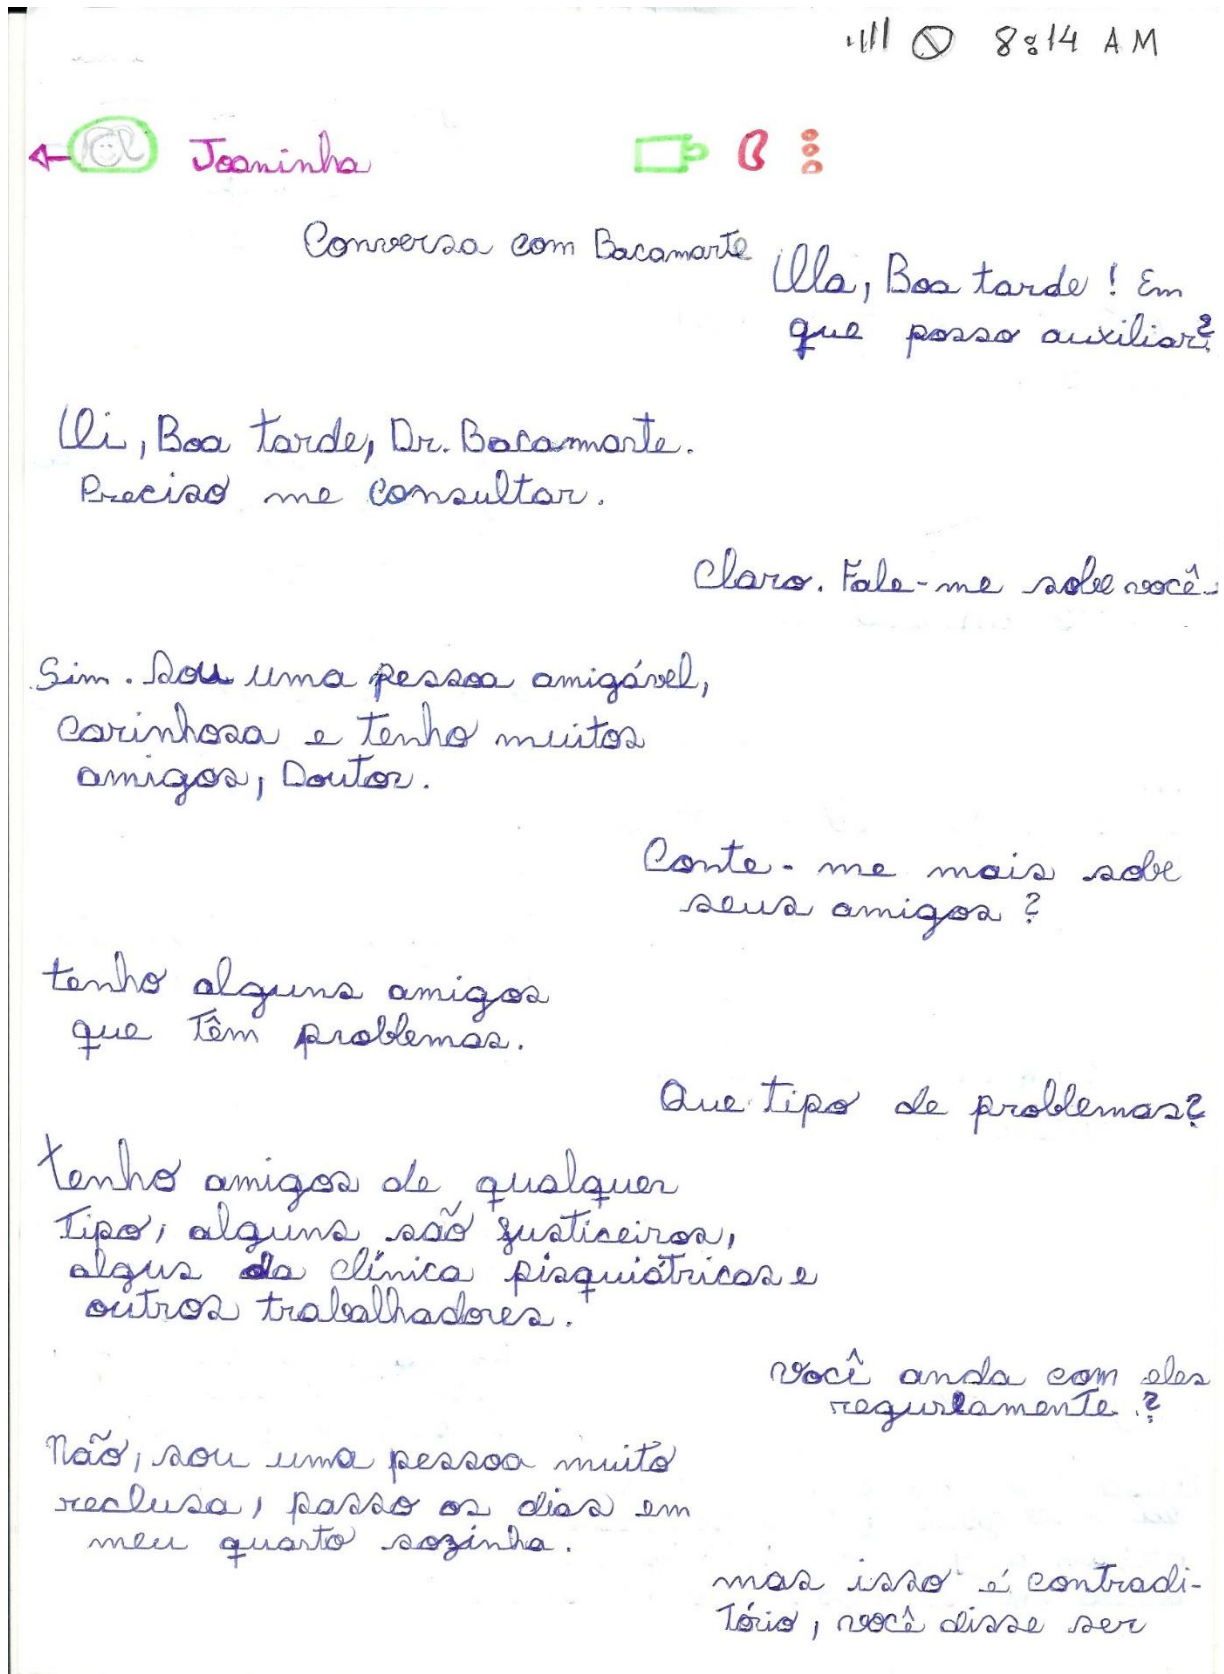 8:14 AM
Joaninha
Conversa com Bacamarte
Olá, Boa tarde! Em
que posso auxiliar?
Oi, Boa tarde, Dr. Bacamarte.
Preciso me consultar.
Claro. Fale-me sobe você.
Sim. Sou uma pessoa amigável,
carinhosa e tenho muitos
amigos, Doutor.
Conte-me mais sobe
seus amigos?
tenho alguns amigos
que têm problemas.
Que tipo de problemas?
tenho amigos de qualquer
tipo, alguns são justiceiros,
algus da clínica pisquiátricas e
outros trabalhadores.
você anda com eles
regurlamente.?
Não, sou uma pessoa muito
reclusa, passo os dias em
meu quarto sozinha.
mas isso é contradi-
tório, você disse ser